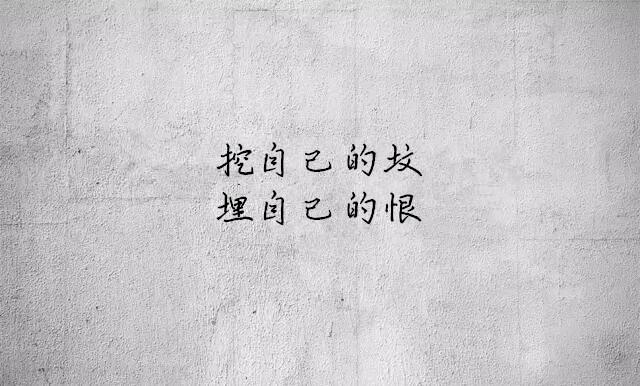 挖自己的坟
埋自己的恨